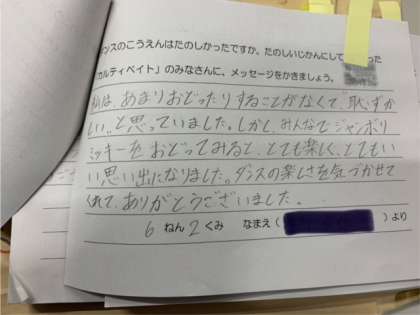 ダンスのこうえんはたのしかったですか。たのしいじかんにして
った
カルティベイト」のみなさんに、メッセージをかきましょう。
私は、あまりおどったりすることがなくて、「恥ずか
しい」と思っていました。しかし、みんなでジャンボリ
ミッキーをおどってみると、とても楽しく、とてもい
い思い出になりました。ダンスの楽しさを気づかせて
くれて、ありがとうございました。
6 ねん 2 くみ なまえ ( ) より